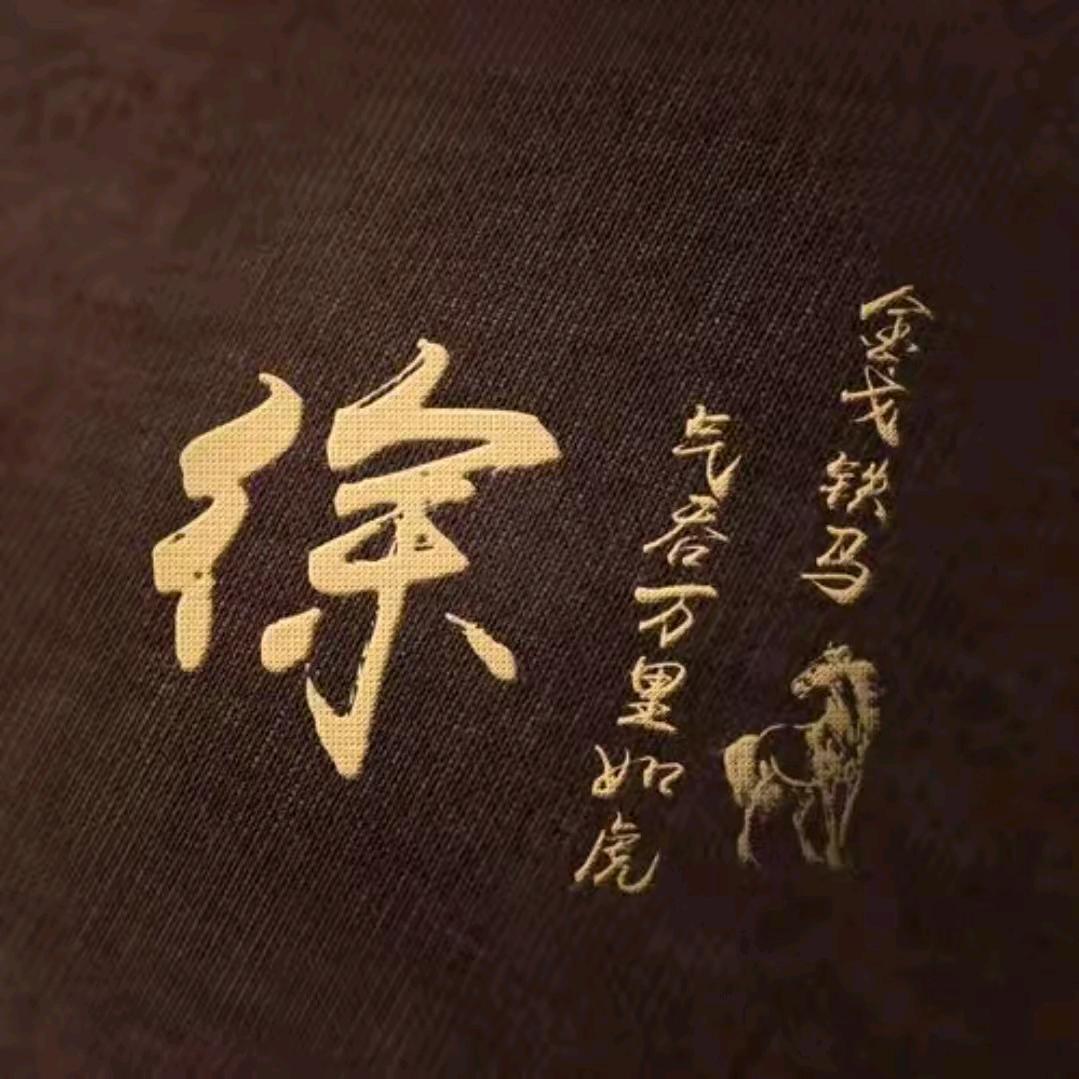 徐
金戈铁马
气吞万里如虎